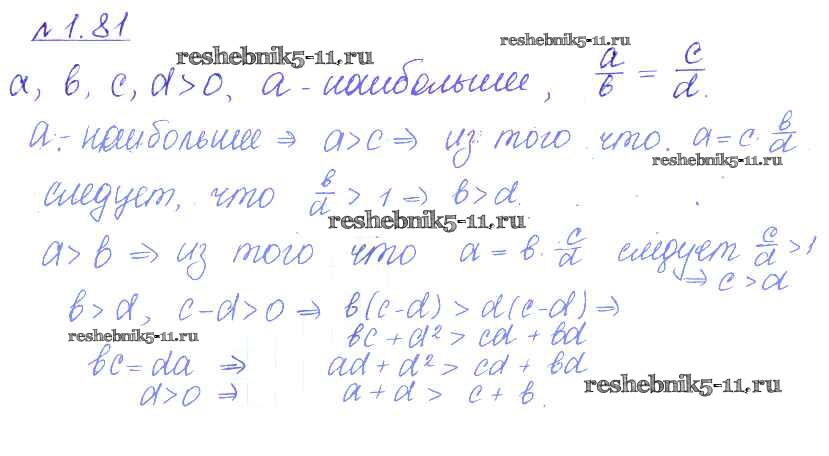 № 1.81
reshebnik5-11.ru
reshebnik5-11.ru
a, b, c, d > 0, a - наибольшее, a/b = c/d.
a - наибольшее ⇒ a > c ⇒ из того что a = c · b/d
reshebnik5-11.ru
следует, что b/d > 1 ⇒ b > d.
reshebnik5-11.ru
a > b ⇒ из того что a = b · c/d следует c/d > 1
⇒ c > d
b > d, c - d > 0 ⇒ b(c-d) > d(c-d) ⇒
reshebnik5-11.ru
bc + d² > cd + bd
bc = da ⇒ ad + d² > cd + bd
d > 0 ⇒ a + d > c + b.
reshebnik5-11.ru